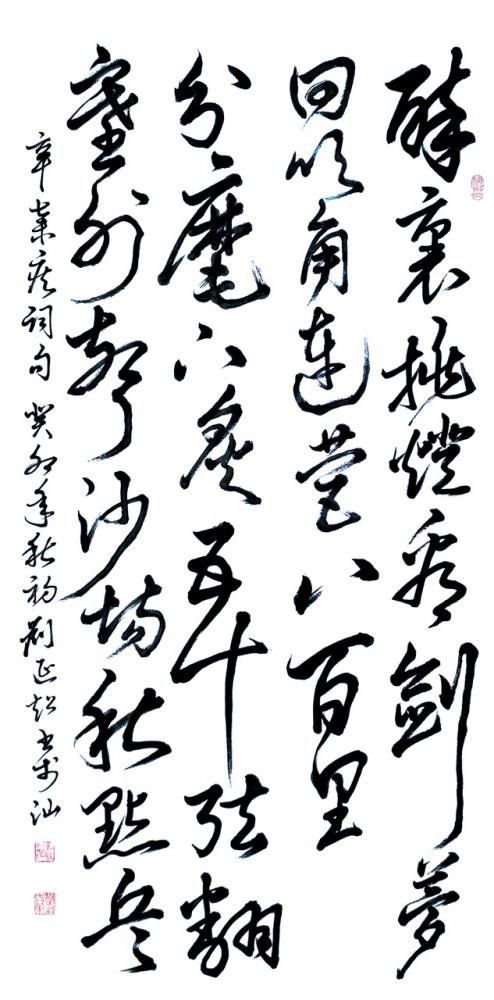 醉裏挑燈看劍夢
回吹角連營八百里
分麾下炙五十弦翻
塞外聲沙場秋點兵
辛棄疾詞句 癸卯年秋初 劉延超書於汕